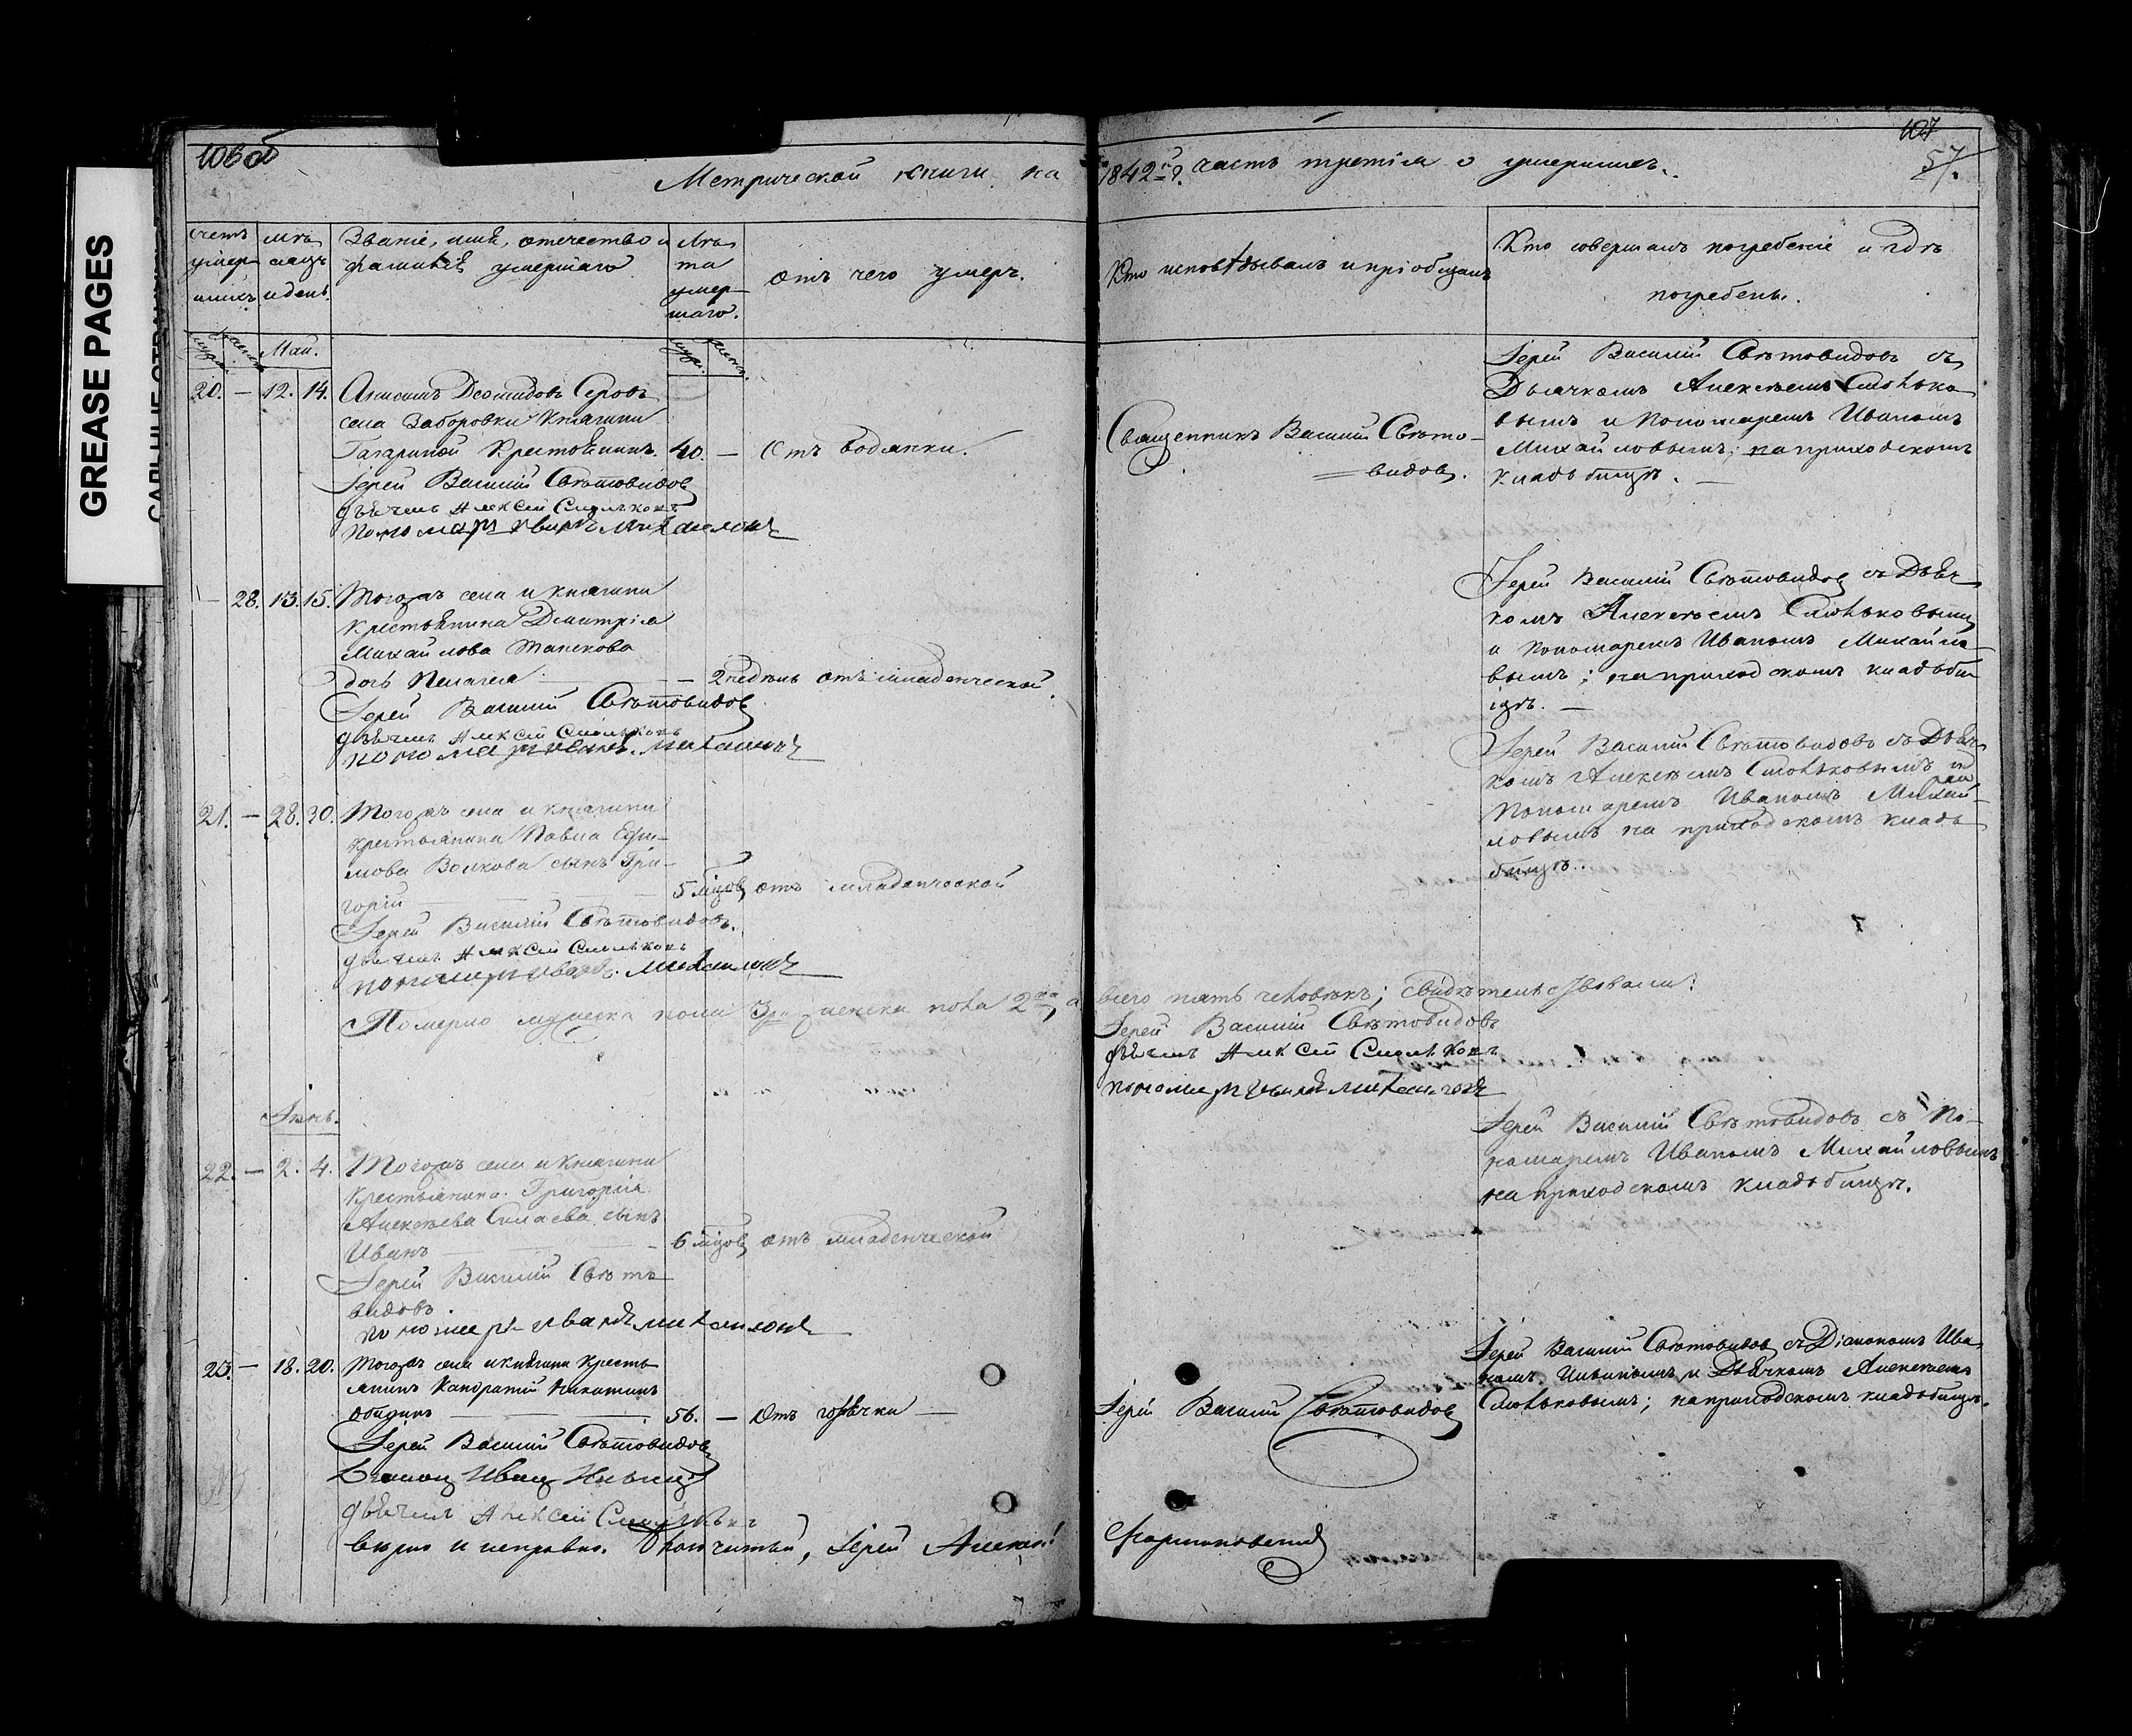 GREASE PAGES
106 об
107
57.
Метрической книги на 1842й г. часть третія о умершихъ.
счетъ умер- шихъ
мѣ- сяцъ и день.
Званіе, имя, отечество и фамилія умершаго
Лѣ- та умер- шаго.
отъ чего умеръ.
Кто исповѣдывалъ и пріобщалъ
Кто совершалъ погребеніе и гдѣ погребены.
Май.
20. — 12. 14.
Деомидовъ Серовъ
села Заборовки Княгини
Гагариной Крестьянинъ. 40. — Отъ водянки.
Іерей Василій Свѣтовидовъ
дьячекъ Алексей Смольковъ
пономарь Иванъ Михаиловъ
Священникъ Василій Свѣто-
видовъ.
Іерей Василій Свѣтовидовъ съ
Дьячкомъ Алексѣемъ Смолько
вымъ и Пономаремъ Иваномъ
Михайловымъ; на приходскомъ
кладьбищѣ. —
— 28. 13. 15.
Тогожъ села и Княгини
Крестьянина Димитрія
Михайлова
дочь Пелагея — 2 недѣль отъ младенческой.
Іерей Василій Свѣтовидовъ
дьячекъ Алексей Смольковъ
пономарь Иванъ Михаиловъ
Іерей Василій Свѣтовидовъ съ Дьяч
комъ Алексѣемъ Смольковымъ
и Пономаремъ Иваномъ Михайло
вымъ; на приходскомъ кладьби
щѣ. —
21. — 28. 30.
Тогожъ села и княгини
крестьянина Павла Ефи-
мова Волкова сынъ Гри-
горій — 5 мцовъ отъ младенческой
Іерей Василій Свѣтовидовъ.
дьячекъ Алексей Смольковъ
пономарь Иванъ Михаиловъ
Іерей Василій Свѣтовидовъ съ Дьяч
комъ Алексѣемъ Смольковымъ и
Пономаремъ Иваномъ Михай-
ловымъ на приходскомъ кладь
бищѣ..
Померло мужеска пола 3ри женска пола 2ва, а всего пять человѣкъ; свидѣтельствовали:
Іерей Василій Свѣтовидовъ
дьячекъ Алексей Смольковъ
пономарь Иванъ Михаиловъ
Іюнь.
22. — 2. 4.
Тогожъ села и Княгини
Крестьянина Григорія
Алексѣева Симаева сынъ
Иванъ — 6 мцовъ отъ младенческой
Іерей Василій Свѣто
видовъ.
пономарь Иванъ Михаиловъ
Іерей Василій Свѣтовидовъ съ По-
номаремъ Иваномъ Михайловымъ
на приходскомъ кладьбищѣ.
23. — 18. 20.
Тогожъ села и княгини Кресть
янинъ Кондратій Никитинъ
— 56. — Отъ горячки —
Іерей Василій Свѣтовидовъ
Діаконъ Иванъ
дьячекъ Алексей Смольковъ
Іерей Василій Свѣтовидовъ
Іерей Василій Свѣтовидовъ съ Діакономъ Ива
номъ и Дьячкомъ Алексѣемъ
Смольковымъ; на приходскомъ кладьбищѣ.
вѣрно и исправно. Благочинный, Іерей Алексѣй